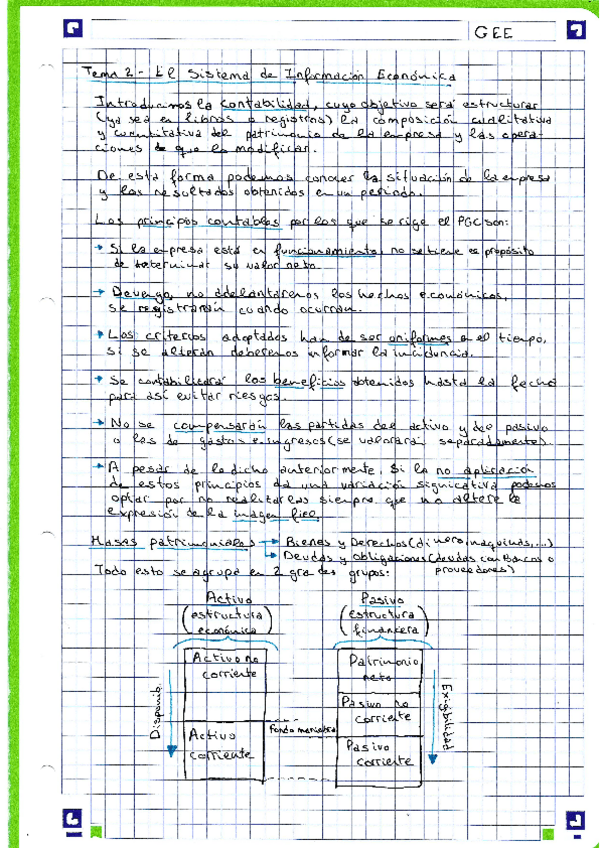 GEE
Tema 2 - El Sistema de Información Económica
Introducimos la contabilidad, cuyo objetivo será estructurar
(ya sea en libros o registros) la composición cualitativa
y cuantitativa del patrimonio de la empresa y las opera-
ciones de que lo modifican.
De esta forma podemos conocer la situación de la empresa
y los resultados obtenidos en un periodo.
Los principios contables por los que se rige el PGC son:
→ Si la empresa está en funcionamiento, no se tiene el propósito
de determinar su valor neto.
→ Devengo, no adelantaremos los hechos económicos,
se registrarán cuando ocurran.
→ Los criterios adoptados han de ser uniformes en el tiempo,
si se alteran deberemos informar la incidencia.
→ Se contabilizará los beneficios obtenidos hasta la fecha
para así evitar riesgos.
→ No se compensarán las partidas del activo y del pasivo
o las de gastos e ingresos (se valorarán separadamente).
→ A pesar de lo dicho anteriormente, si la no aplicación
de estos principios da una variación significativa podemos
optar por no realizarlas siempre que no altere la
expresión de la imagen fiel.
Masas patrimoniales → Bienes y Derechos (dinero, maquinas,...)
→ Deudas y obligaciones (deudas con Bancos o
proveedores)
Todo esto se agrupa en 2 grandes grupos:
Activo Pasivo
(estructura económica) (estructura financiera)
Activo no corriente Patrimonio neto
Pasivo no corriente
Disponib. Exigibilidad
fondo maniobra
Activo corriente Pasivo corriente